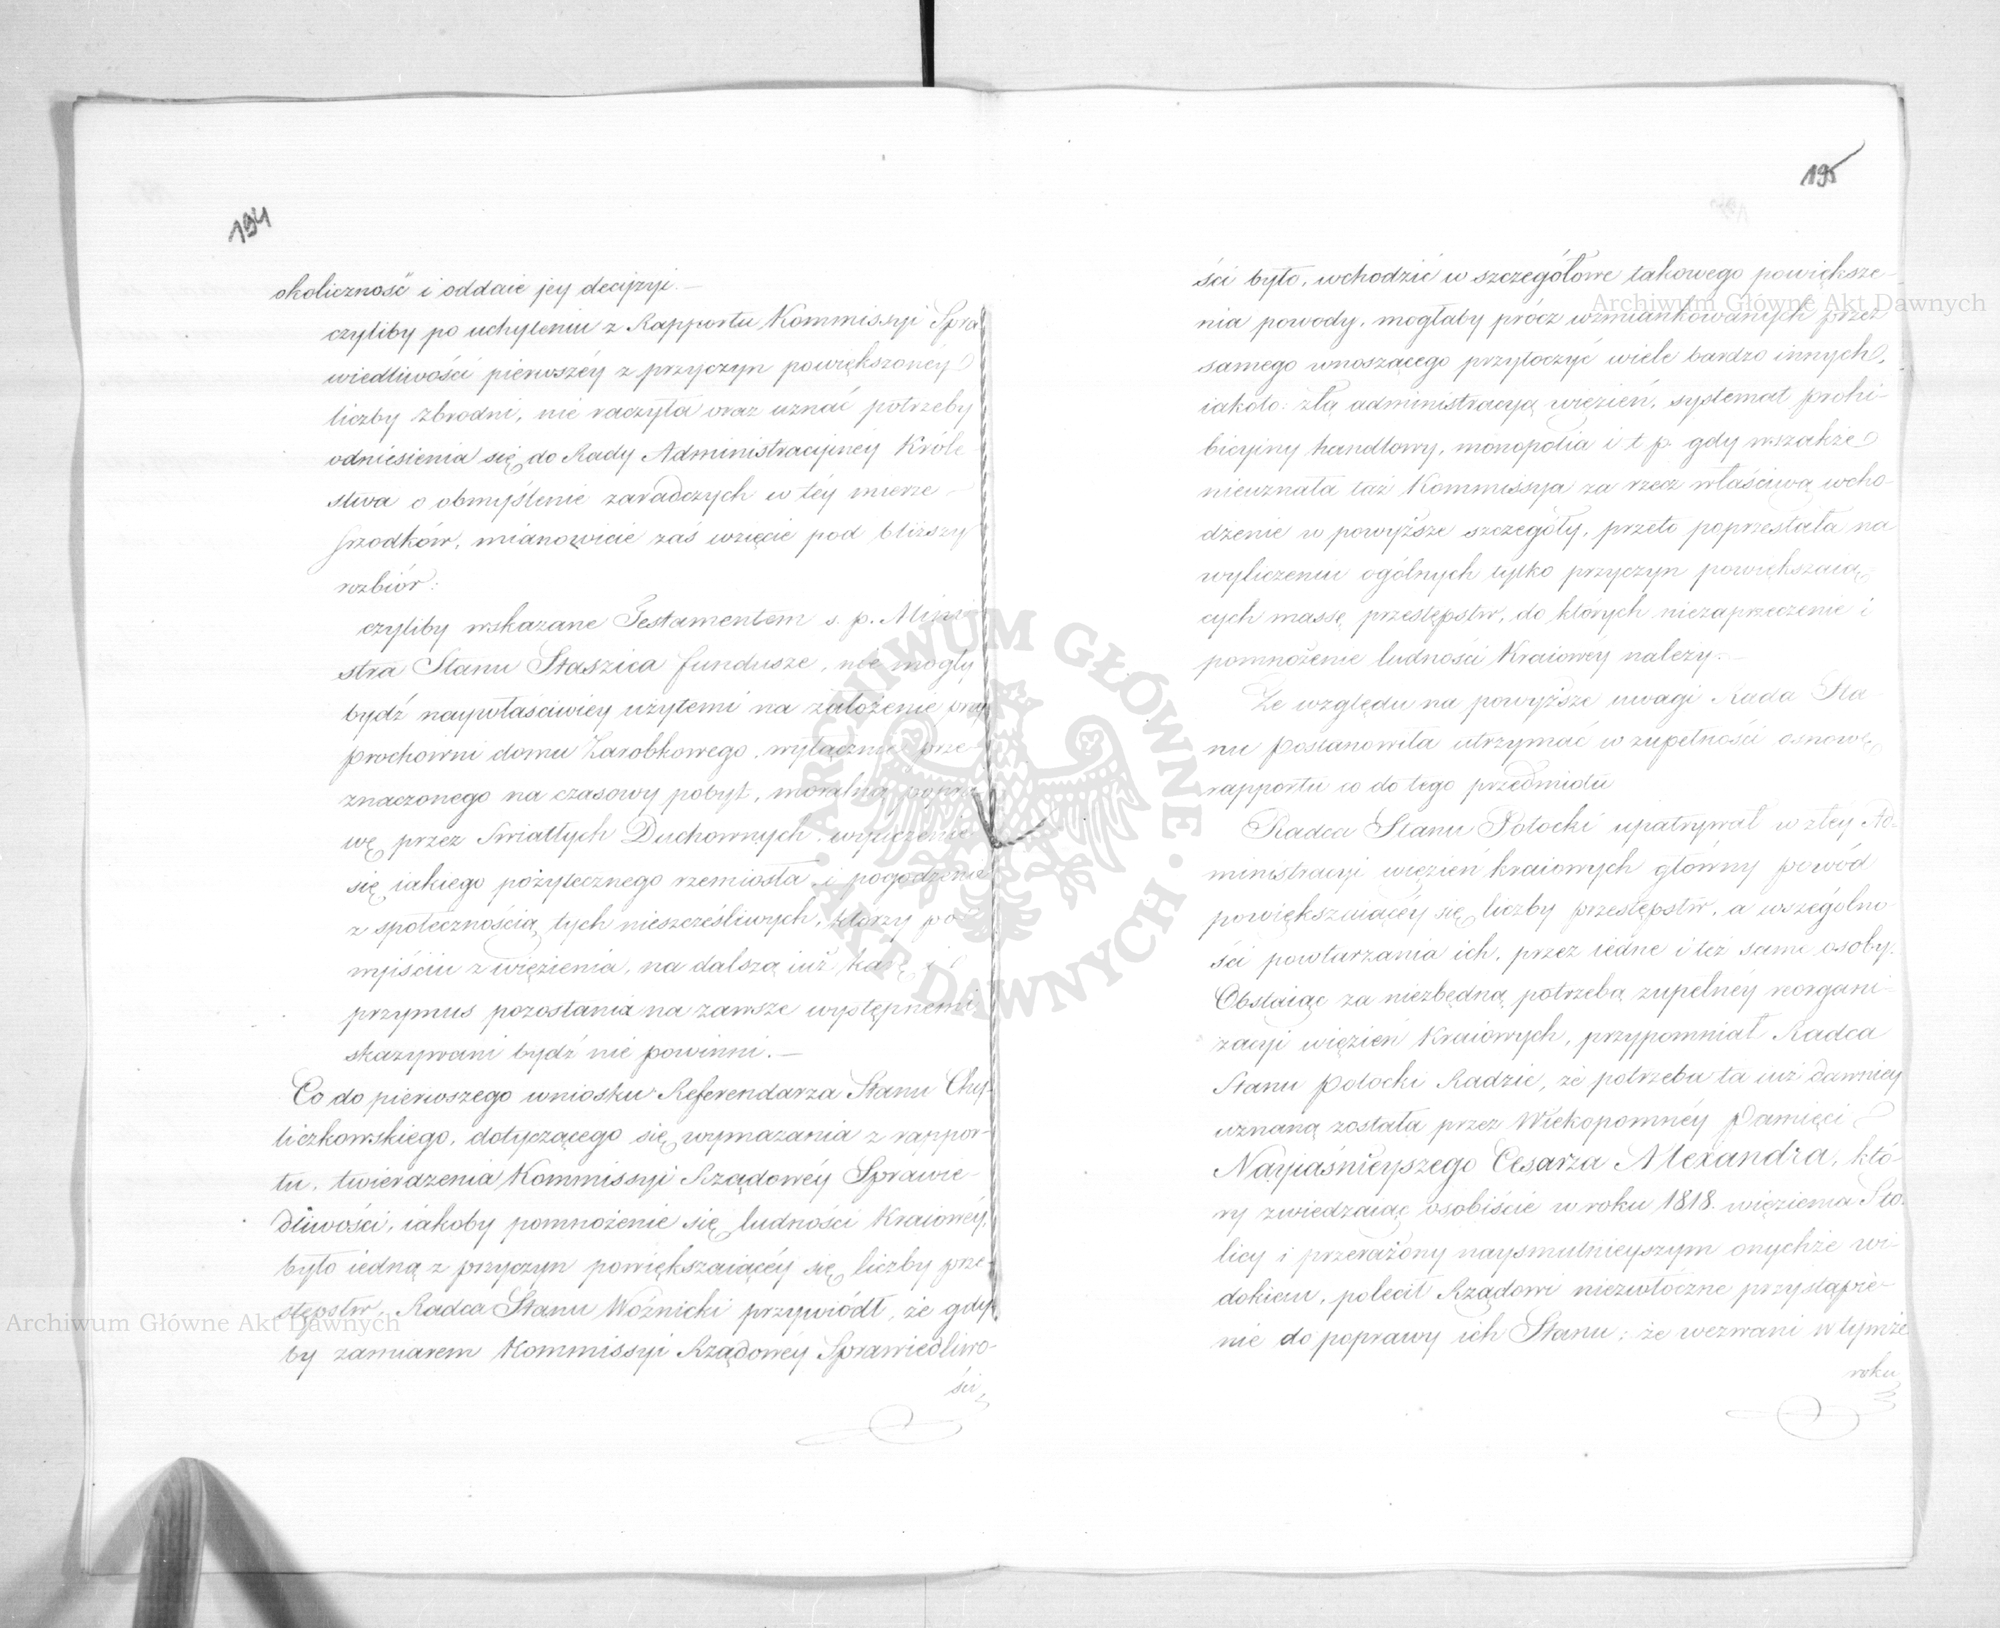 194
okoliczność i oddaie jey decizyi.—
czyliby po uchyleniu z Rapportu Kommissyi Spra
wiedliwości pierwszéy z przyczyn powiększonéy
liczby zbrodni, nie raczyła oraz uznać potrzeby
odniesienia się do Rady Administracyinéy Króle-
stwa o obmyślenie zaradczych w téy mierze
śrzodków, mianowicie zaś wzięcie pod bliższy
rozbiór:
czyliby wskazane Testamentem s. p. Mini
stra Stanu Staszica fundusze, nie mogły
bydź naywłaściwiey użytemi na założenie przy
prochowni domu Zarobkowego, wyłącznie prze
znaczonego na czasowy pobyt, moralną popra
wę przez Swiatłych Duchownych, wyuczenie
się iakiego pożytecznego rzemiosła, i pogodzenie
z społecznością tych nieszcześliwych, którzy po
wyiściu z więzienia, na dalszą iuż karę i
przymus pozostania na zawsze występnemi
skazywani bydź nie powinni.—
Co do pierwszego wniosku Referendarza Stanu Chy-
liczkowskiego, dotyczącego się wymazania z rappor-
tu, twierdzenia Kommissyi Rządowéy Sprawie-
dliwości, iakoby pomnożenie się ludności Kraiowéy,
było iedną z przyczyn powiększaiącéy się liczby prze-
stępstw, Radca Stanu Woźnicki przywiódł, że gdy-
by zamiarem Kommissyi Rządowéy Sprawiedliwo-
ści
195
ści było, wchodzić w szczegółowe takowego powiększe-
nia powody, mogłaby prócz wzmiankowanych przez
samego wnoszącego przytoczyć wiele bardzo innych,
iakoto: złą administracyą więzień, systemat prohi-
bicyiny handlowy, monopolia i t p. gdy wszakże
nieuznała taż Kommissya za rzecz właściwą wcho-
dzenie w powyższe szczegóły, przeto poprzestała na
wyliczeniu ogólnych tylko przyczyn powiększaią
cych massę przestępstw, do których niezaprzeczenie i
pomnożenie ludności Kraiowey należy.—
Ze względu na powyższe uwagi Rada Sta-
nu postanowiła utrzymać w zupełności osnowę
rapportu co do tego przedmiotu
Radca Stanu Potocki upatrywał w złéy Ad-
ministracyi więzień kraiowych główny powód
powiększaiącéy się liczby przestępstw, a wszególno-
ści powtarzania ich, przez iedne i też same osoby.
Obstaiąc za niezbędną potrzebą zupełnéy reorgani-
zacyi więzień Kraiowych, przypomniał Radca
Stanu Potocki Radzie, że potrzeba ta iuż dawniey
uznaną została przez Wiekopomnéy Pamięci
Nayiaśnieyszego Cesarza Alexandra, któ-
ry zwiedzaiąc osobiście w roku 1818. więzienia Sto-
licy i przerażony naysmutnieyszym onychże wi-
dokiem, polecił Rządowi niezwłoczne przystąpie-
nie do poprawy ich Stanu; że wezwani w tymże
roku
Archiwum Główne Akt Dawnych
Archiwum Główne Akt Dawnych
ARCHIWUM GŁÓWNE · AKT DAWNYCH ·